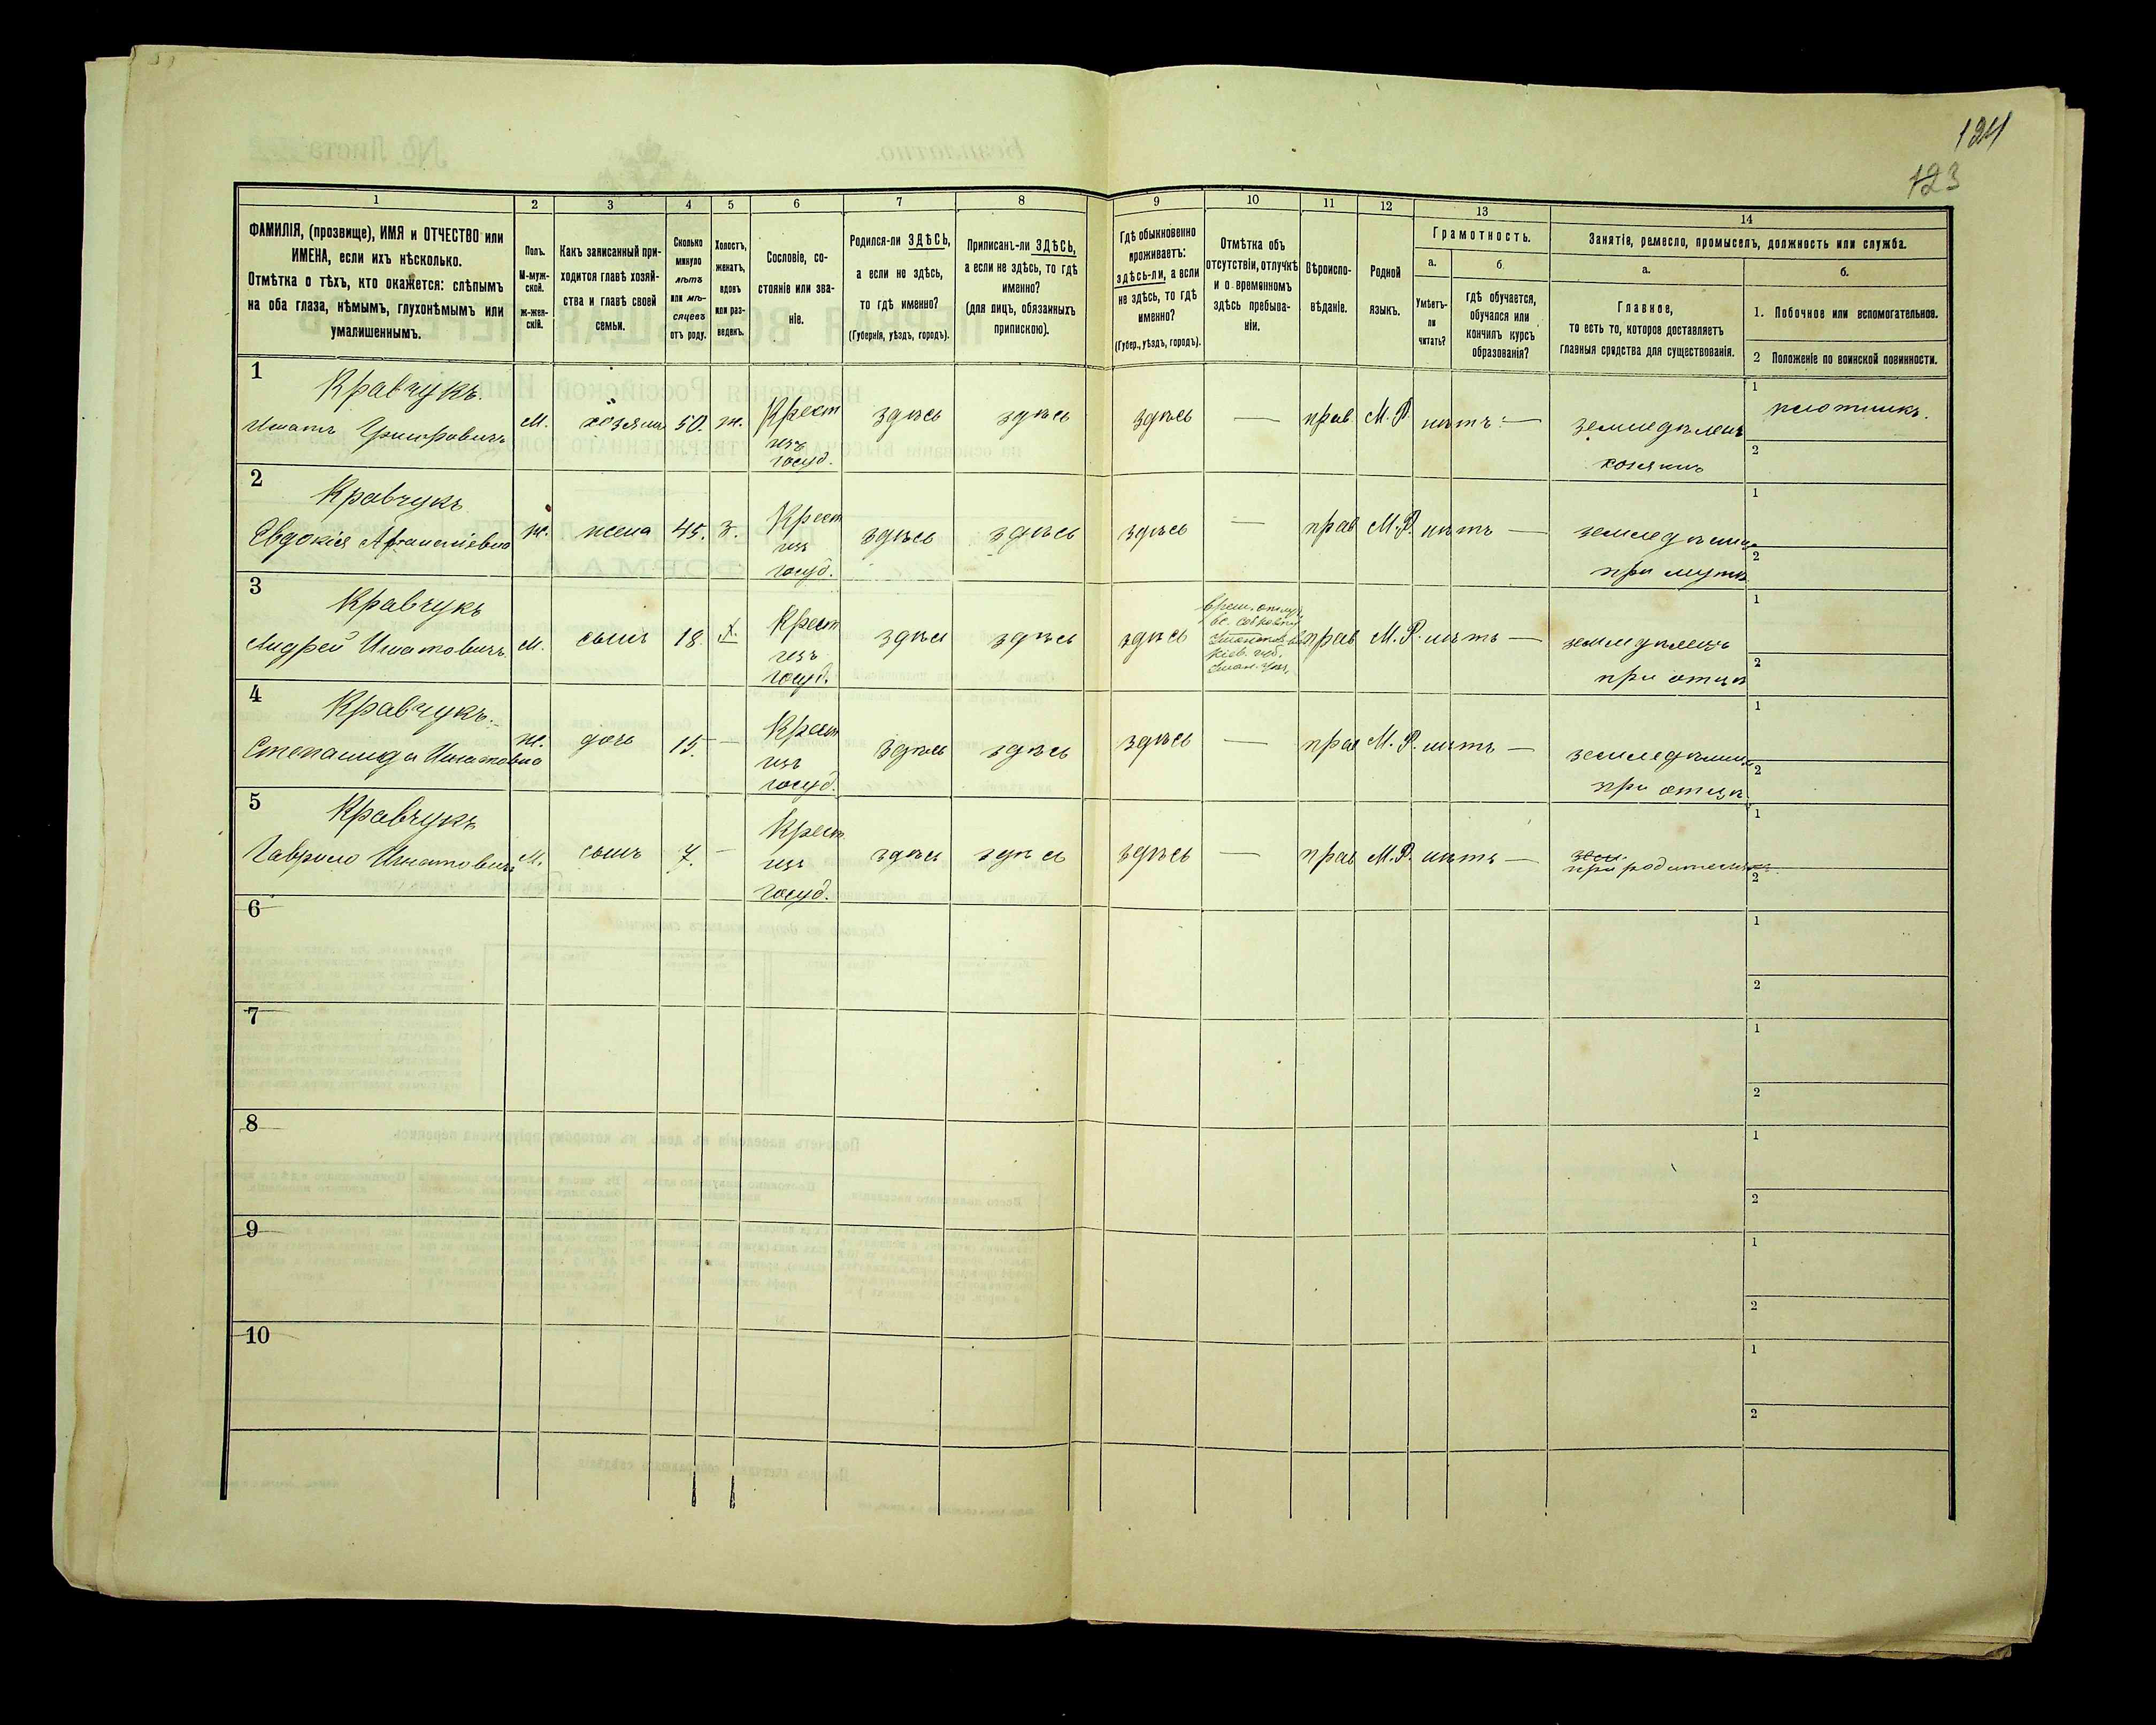 124
123
1 2 3 4 5 6 7 8 9 10 11 12 13 14
ФАМИЛІЯ, (прозвище), ИМЯ и ОТЧЕСТВО или
ИМЕНА, если ихъ нѣсколько.
Отмѣтка о тѣхъ, кто окажется: слѣпымъ
на оба глаза, нѣмымъ, глухонѣмымъ или
умалишеннымъ.
Полъ.
М-муж-
ской.
ж-жен-
скій.
Какъ записанный при-
ходится главѣ хозяй-
ства и главѣ своей
семьи.
Сколько
минуло
лѣтъ
или мѣ-
сяцевъ
отъ роду.
Холостъ,
женатъ,
вдовъ
или раз-
веденъ.
Сословіе, со-
стояніе или зва-
ніе.
Родился-ли ЗДѢСЬ,
а если не здѣсь,
то гдѣ именно?
(Губернія, уѣздъ, городъ).
Приписанъ-ли ЗДѢСЬ,
а если не здѣсь, то гдѣ
именно?
(для лицъ, обязанныхъ
припискою).
Гдѣ обыкновенно
проживаетъ:
здѣсь-ли, а если
не здѣсь, то гдѣ
именно?
(Губер., уѣздъ, городъ).
Отмѣтка объ
отсутствіи, отлучкѣ
и о временномъ
здѣсь пребыва-
ніи.
Вѣроиспо-
вѣданіе.
Родной
языкъ.
Грамотность.
а.
Умѣетъ-
ли
читать?
б.
гдѣ обучается,
обучался или
кончилъ курсъ
образованія?
Занятіе, ремесло, промыселъ, должность или служба.
а.
Главное,
то есть то, которое доставляетъ
главныя средства для существованія.
б.
1. Побочное или вспомогательное.
2 Положеніе по воинской повинности.
1
Кравчукъ.
Игнатъ Григоровичъ М. хозяинъ 50. ж. Крест здѣсь здѣсь здѣсь — прав М.Р. нѣтъ — земледѣлецъ 1 плотникъ.
изъ
госуд. хозяинъ 2
2
Кравчукъ
Евдокія Афанасіевна ж. жена 45. з. Крест здѣсь здѣсь здѣсь — прав М.Р. нѣтъ — 1
изъ
госуд. при мужѣ 2
3
Кравчукъ
Андрей Игнатовичъ М. сынъ 18 Х. Крест здѣсь здѣсь здѣсь прав М.Р. нѣтъ — земледѣлецъ 1
Кіев. губ.
изъ
госуд. при отцѣ 2
4
Кравчукъ.
Степанида Игнатовна ж. дочь 15. — Крест здѣсь здѣсь здѣсь — прав М.Р. нѣтъ — 1
изъ
госуд. при отцѣ 2
5
Кравчукъ
Гаврило Игнатовичъ М. сынъ 7. — Крест здѣсь здѣсь здѣсь — прав М.Р. нѣтъ — зем. 1
изъ при родителяхъ 2
госуд.
6 1
2
7 1
2
8 1
2
9 1
2
10 1
2